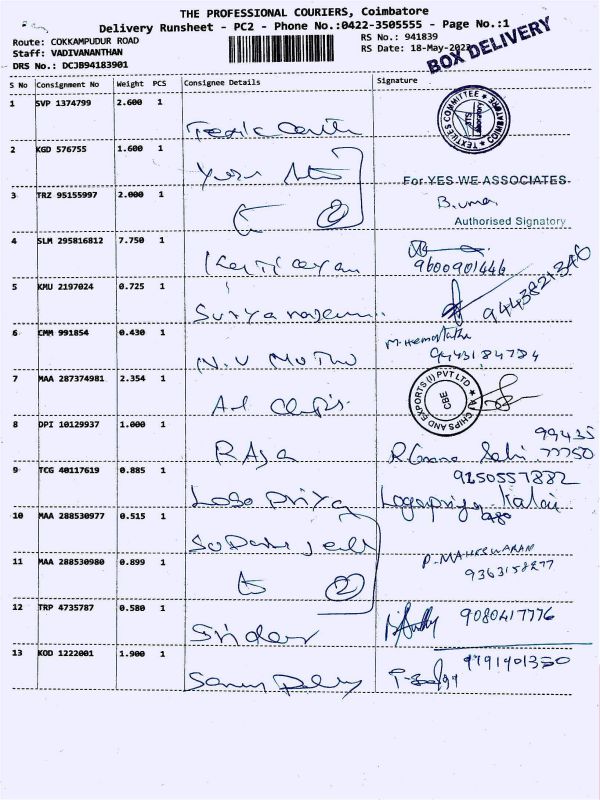 THE PROFESSIONAL COURIERS, Coimbatore
Delivery Runsheet - PC2 - Phone No.:0422-3505555 - Page No.:1
Route: COKKAMPUDUR ROAD
Staff: VADIVANANTHAN
DRS No.: DCJB94183901
RS No.: 941839
RS Date: 18-May-2022
BOX DELIVERY
S No Consignment No Weight PCS Consignee Details Signature
1 SVP 1374799 2.600 1
TEXTILES COMMITTEE COIMBATORE
2 KGD 576755 1.600 1
For YES WE ASSOCIATES
3 TRZ 95155997 2.000 1 2
B.uma
Authorised Signatory
4 SLM 295816812 7.750 1 Karticayan
9600901446
5 KMU 2197024 0.725 1
9443821346
6 CMM 991854 0.430 1 N.V Muthu
9443184784
7 MAA 287374981 2.354 1 A1 Chips
A1 CHIPS AND EXPORTS (I) PVT LTD CBE
8 DPI 10129937 1.000 1 RAJA
99435
77750
9 TCG 40117619 0.885 1 Logo Priya
9250557882
Logapriya Kalai
10 MAA 288530977 0.515 1
11 MAA 288530980 0.899 1 2
P. MAHESWARAN
9363158277
12 TRP 4735787 0.580 1 Sridar
9080417776
13 KOD 1222001 1.900 1
9791401350